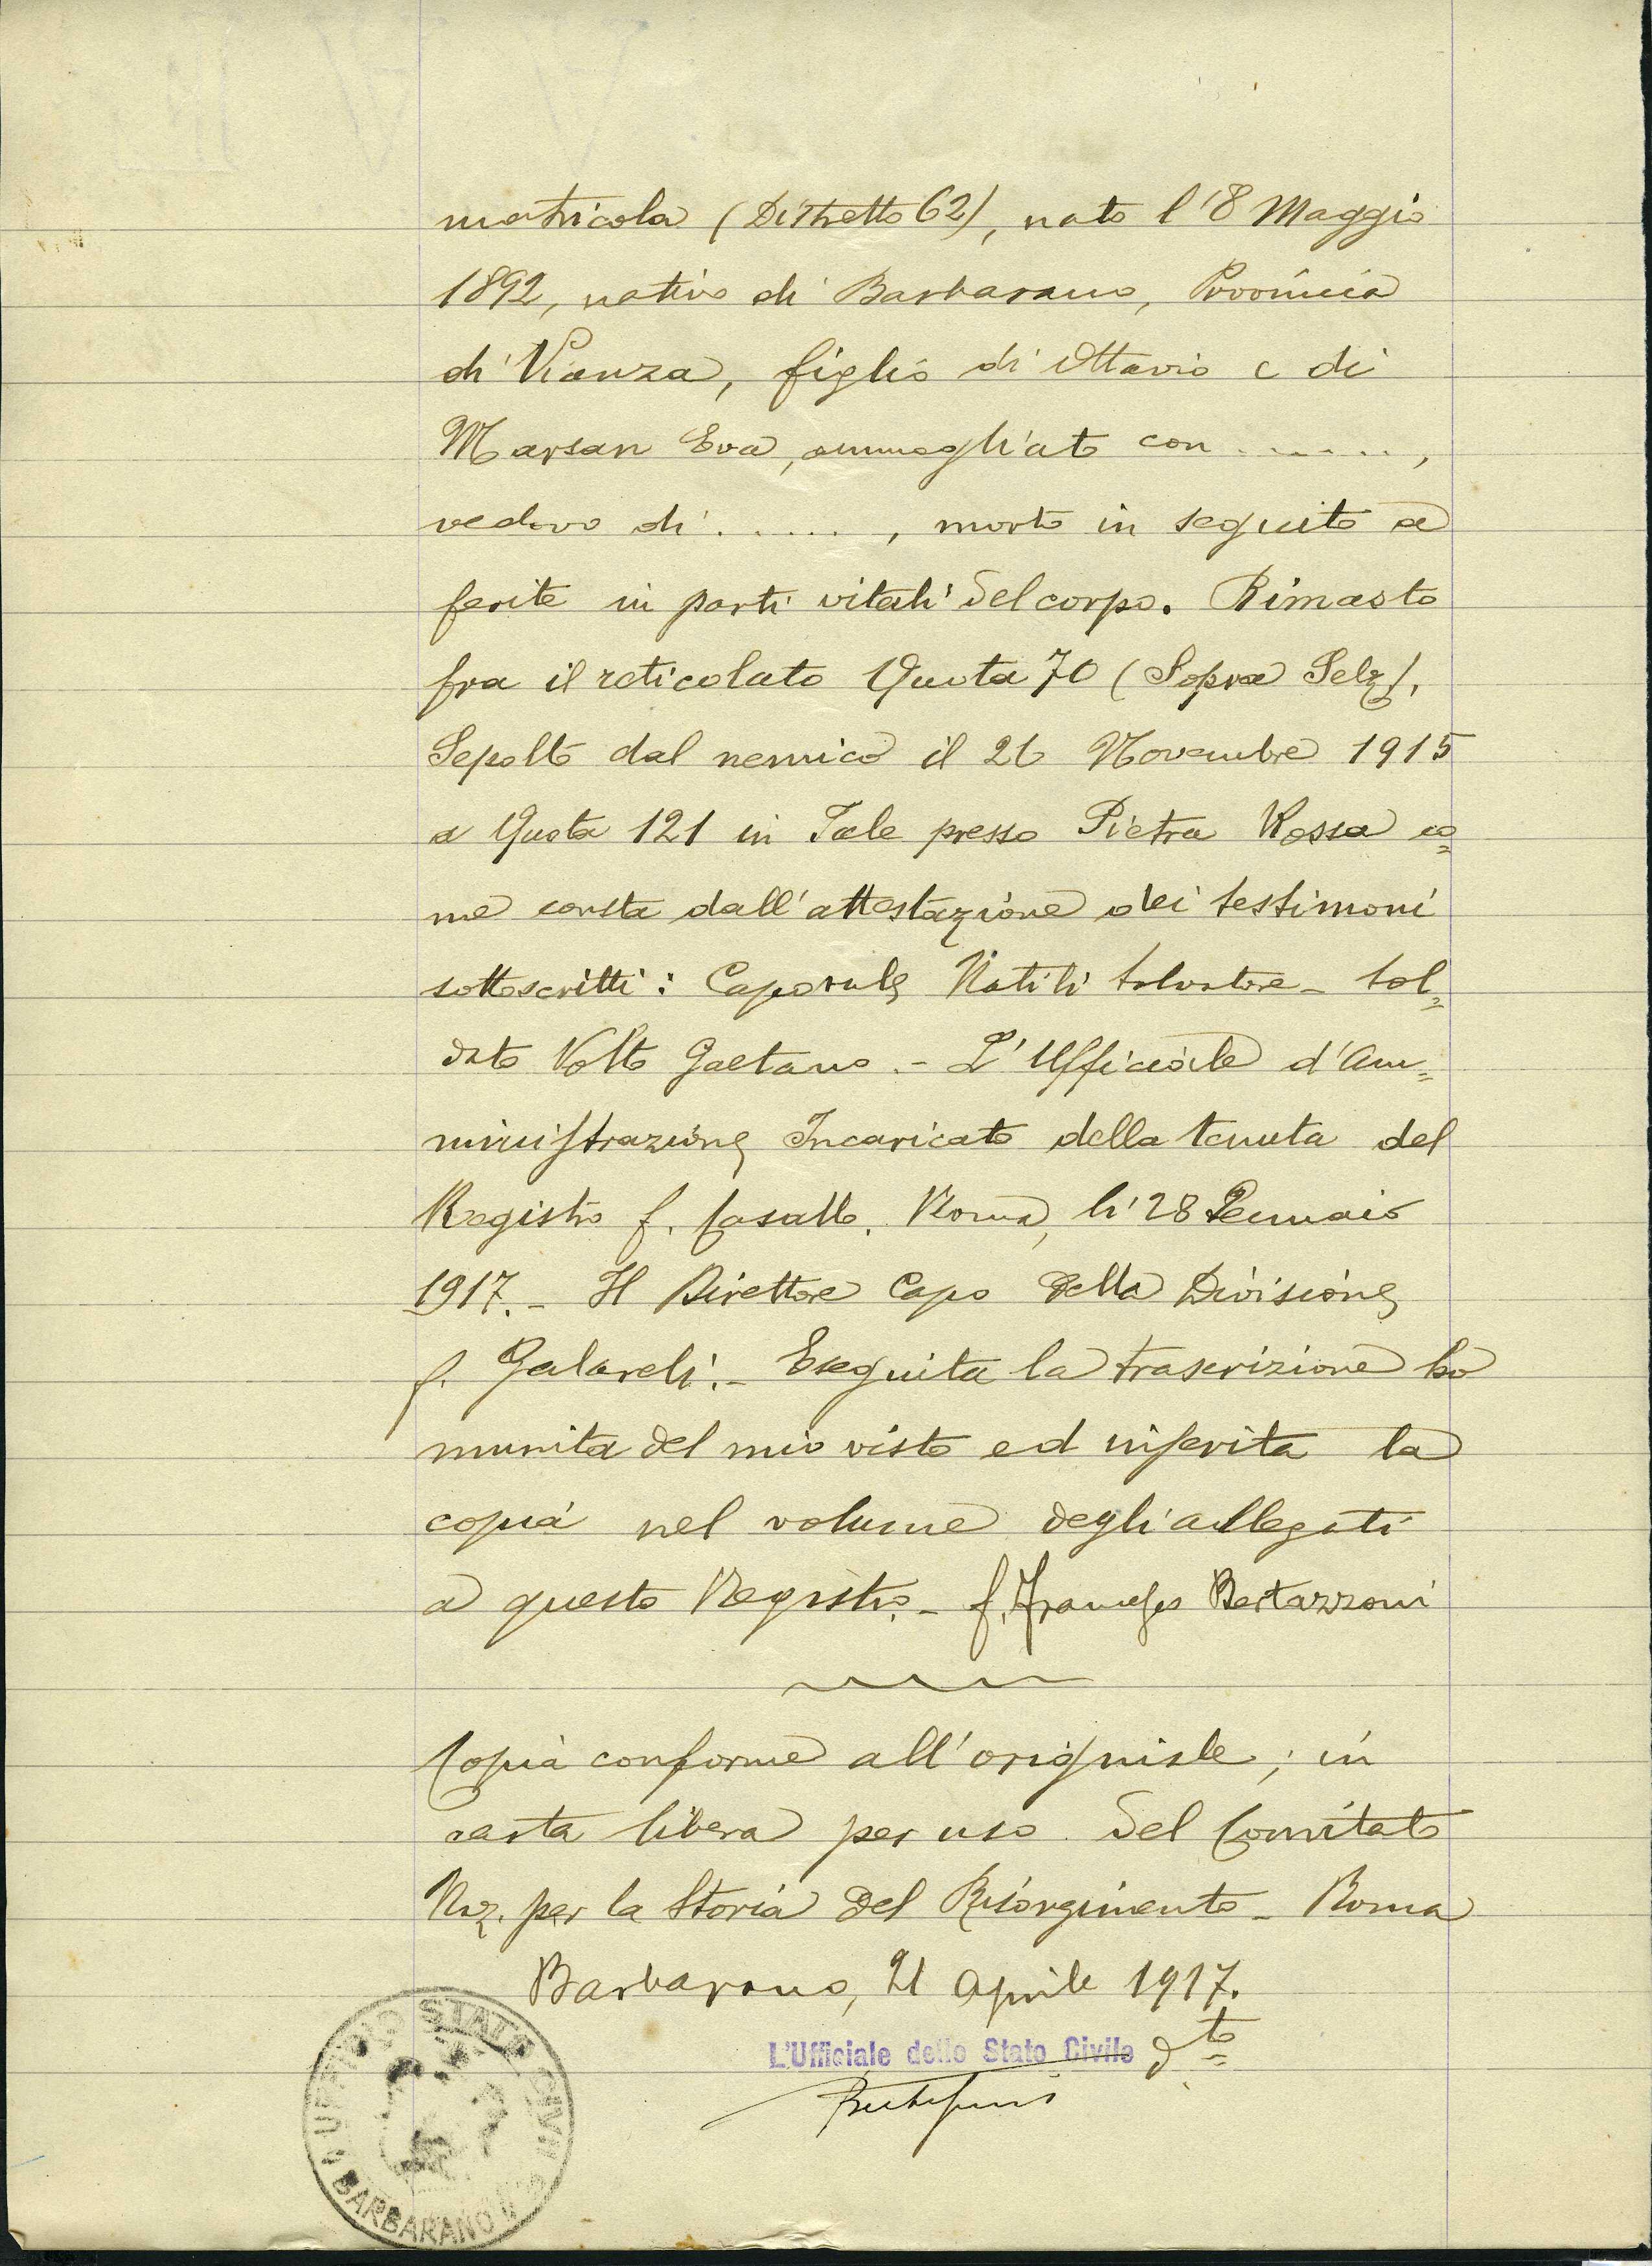 matricola (Distretto 62), nato l'8 Maggio
1892, nativo di Barbarano, Provincia
di Vicenza, figlio di Ottavio e di
Marsan Eva, ammogliato con .......,
vedovo di ......, morto in seguito a
ferite in parti vitali del corpo. Rimasto
fra il reticolato Quota 70 (Sopra Selz).
Sepolto dal nemico il 26 Novembre 1915
a Quota 121 in Tale presso Pietra Rossa co=
me consta dall'attestazione dei testimoni
sottoscritti: Caporale Natili Salvatore - Sol=
dato Volto Gaetano. - L'Ufficiale d'Am=
ministrazione Incaricato della tenuta del
Registro f. Casallo. Roma, li 28 Gennaio
1917. - Il Direttore Capo della Divisione
f. - Eseguita la trascrizione ho
munita del mio visto ed inserita la
copia nel volume degli allegati
a questo Registro. - f. Francesco Bertazzoni
Copia conforme all'originale; in
carta libera per uso del Comitato
Naz. per la Storia del Risorgimento - Roma
Barbarano, 21 Aprile 1917.
L'Ufficiale dello Stato Civile d.to
UFFICIO STATO CIVILE
BARBARANO